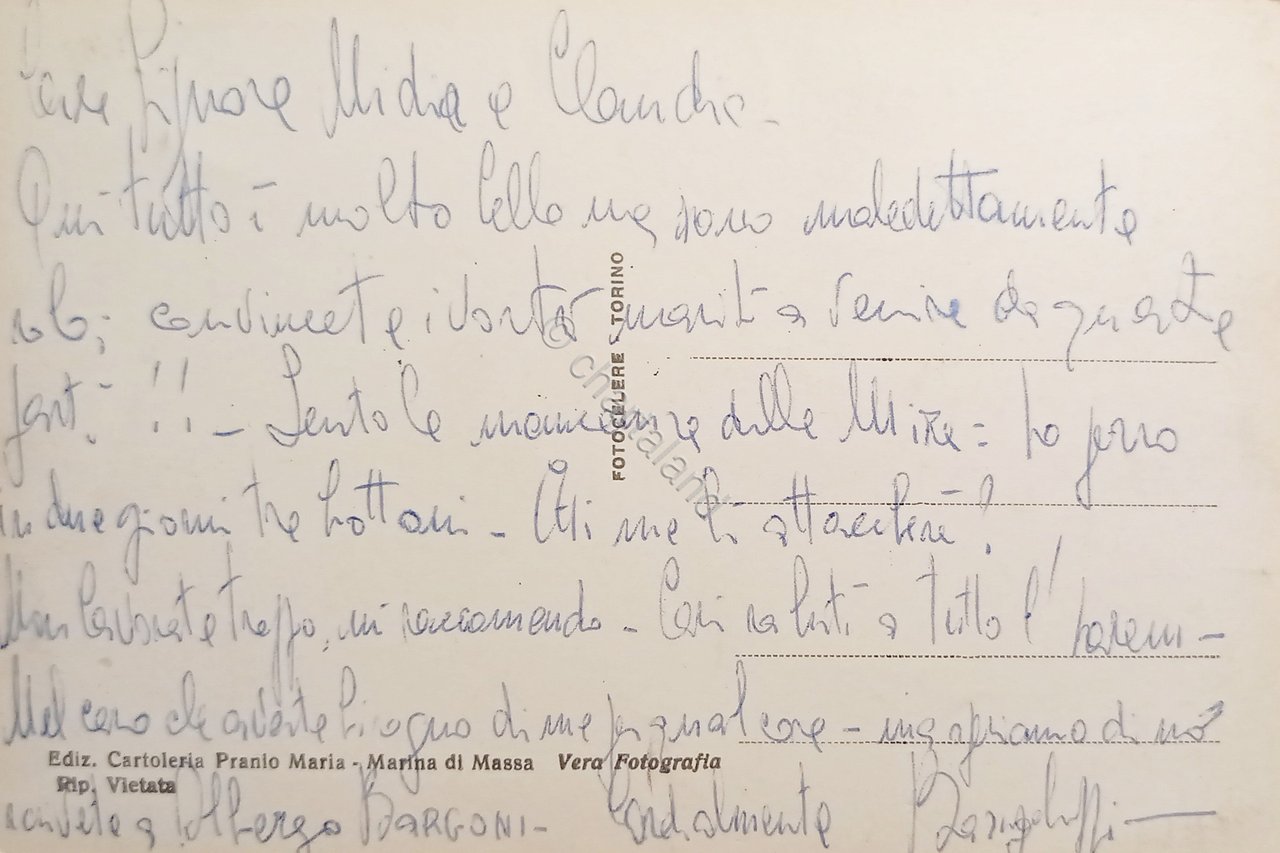 Care Signore Midia e Claudia -
Qui tutto è molto bello ma sono maledettamente
solo; convincete i vostri mariti a venire da queste
parti !!! - Sento la mancanza della - ho perso
in due giorni tre bottoni - Chi me li attaccherà?
Non lavorate troppo, mi raccomando - Cari saluti a tutto l'harem -
Nel caso che aveste bisogno di me per qualcosa - ma speriamo di no
scrivete a Albergo BARGONI - Cordialmente
FOTOCELERE - TORINO
© chantalandi
Ediz. Cartoleria Pranio Maria - Marina di Massa Vera Fotografia
Rip. Vietata